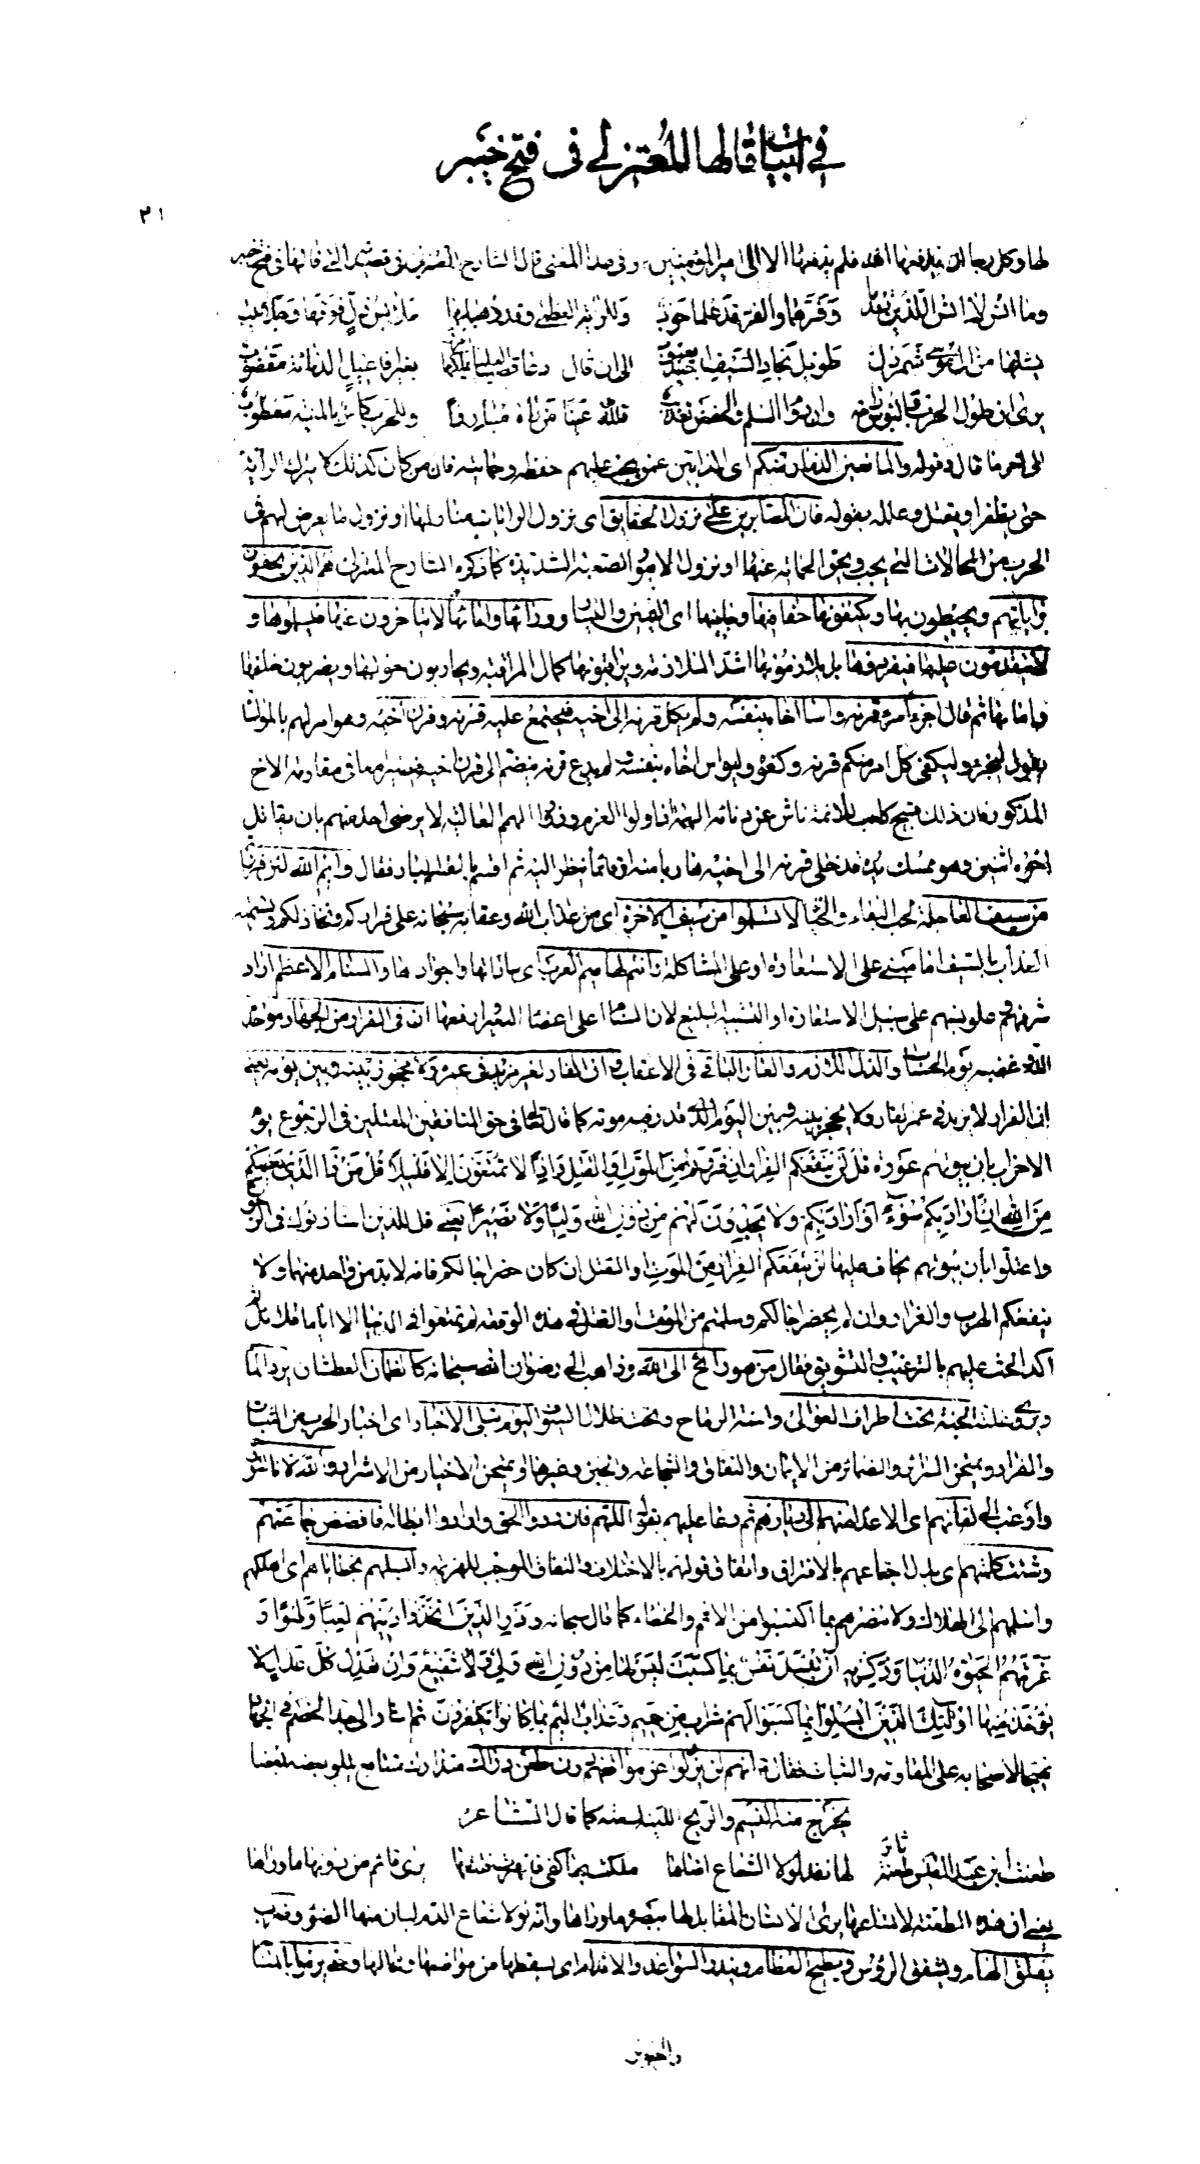 في ابيات قالها المعتزلي في فتح خيبر
٢١
لها وكل رجا ان يدفعها اليه فلم يدفعها الا الى امير المؤمنين وفي هذا المعنى قال الشارح المعتزلي في قصيدته التي قالها في فتح خيبر
وما انس لا انس اللذين تقدما وفرهما والفر قد علما حوب وللراية العظمى وقد ذهبا بها ملابس ذل فوقها وجلابيب
يشلهما من آل موسى شمردل طويل نجاد السيف اجيد يعبوب الى ان قال دعا قصب العلياء يملكها بغير افاعيل الدناءة مقضوب
يرى ان طول الحرب والبؤس راحة وان دوام السلم والخفض تعذيب فلله عينا من رآه مبارزا وللحرب كاس بالمنية مقطوب
الى آخر ما قال وقوله والمانعين الذمار منكم اى الذابين عمن يجب عليهم حفظه وحمايته فان من كان كذلك لا يترك الراية
حتى يظفر او يقتل وعلله بقوله فان الصابرين على نزول الحقايق اى نزول او نزول ما يعرض لهم في
الحرب من الحالات التي يجب ويحق الحماية عنها او نزول الامور الصعبة الشديدة كما ذكره الشارح المعتزلي هم الذين يحفون
براياتهم ويحيطون بها ويكتنفونها حفافيها وجانبيها اى اليمين واليسار ووراءها وامامها لا يتاخرون عنها فيسلموها و
لا يتقدمون عليها فيفردوها بل يلازمونها اشد الملازمة ويراقبونها كمال المراقبة ويحاربون حولها ويضربون خلفها
وامامها ثم قال اجزء امرء قرنه وآسا اخاه بنفسه ولم يكل قرنه الى اخيه فيجتمع عليه قرنه وقرن اخيه وهو امر لهم بالمواساة
يقول وليكفى كل امرء منكم قرنه وكفوه وليواس اخاه بنفسه ولم يدع قرنه ينضم الى قرن اخيه فيصيرا معا في مقاومة الاخ
المذكور فان ذلك قبيح ناش عن دنائة الهمة فاولوا العزم وذووا الهمم العالية لا يرضى احد منهم بان يقاتل
اخوه اثنين وهو ممسك يده قد خلى قرنه الى اخيه هاربا منه او قائما ينظر اليه ثم اقسم بالقسم البار فقال وايم الله لئن فررتم
من سيف العاجلة لحب البقاء والحياة لا تسلموا من سيف الآخرة اى من عذاب الله وعقابه سبحانه على فراركم وتخاذلكم وتسمية
العذاب بالسيف اما مبني على الاستعارة او على المشاكلة وانتم لهاميم العرب اى ساداتها واجوادها والسنام الاعظم اراد
شرفهم وعلو نسبهم على سبيل الاستعارة او التشبيه البليغ لان السنام اعلى اعضاء البعير ارفعها ان في الفرار من الجهاد موجدة
الله وغضبه يوم الحساب والذل اللازم والعار الباقى في الاعقاب وان الفار لغير مزيد في عمره ولا محجوز بينه وبين يومه يعني
ان الفرار لا يزيد في عمر الفار ولا يحجز بينه وبين اليوم الذي قدر فيه موته كما قال تعالى في حق المنافقين المعتلين في الرجوع يوم
الاحزاب بان بيوتهم عورة قل لن ينفعكم الفرار ان فررتم من الموت او القتل واذا لا تمتعون الا قليلا قل من ذا الذي يعصمكم
من الله ان اراد بكم سوءا او اراد بكم رحمة ولا يجدون لهم من دون الله وليا ولا نصيرا يعنى قل للذين استاذنوك في الرجوع
واعتلوا بان بيوتهم يخاف عليها لن ينفعكم الفرار من الموت او القتل ان كان حضر آجالكم فانه لا بد من واحد منهما ولا
ينفعكم الهرب والفرار وان لم يحضر آجالكم وسلمتم من الموت او القتل في هذه الوقعة لم تمتعوا في الدنيا الا اياما قلائل ثم
اكد الحث عليهم بالترغيب والتشويق فقال من هو رائح الى الله وذاهب الى رضوان الله سبحانه كالظمآن العطشان يرد الماء
ويروى الجنة تحت اطراف العوالي واسنة الرماح وتحت ظلال السيوف اليوم تبلى الاخبار اى اختبار الحرب من الثبات
والفرار ويمتحن السرائر والضمائر من الايمان والنفاق والشجاعة والجبن وغيرها او يمتحن الاخيار من الاشرار والله لانا اشوق
واوغب الى لقائهم اى الاعداء منهم الى ديارهم ثم دعا عليهم بقوله اللهم فان ردوا الحق وارادوا ابطاله فافضض جماعتهم
وشتت كلمتهم اى بدل اجتماعهم بالافتراق واتفاق قولهم بالاختلاف والنفاق الموجب للهزيمة وابسلهم بخطاياهم اى اهلكهم
واسلمهم الى الهلاك ولا تنصرهم بما اكتسبوا من الاثم والخطاء كما قال سبحانه وذر الذين اتخذوا دينهم لعبا ولهوا و
غرتهم الحيوة الدنيا وذكر به ان تبسل نفس بما كسبت ليس لها من دون الله ولي ولا شفيع وان تعدل كل عدل لا
يؤخذ منها اولئك الذين ابسلوا بما كسبوا لهم شراب من حميم وعذاب اليم بما كانوا يكفرون ثم اشار الى جد الخصم في القتال
تهييجا لاصحابه على المقاومة والثبات فقال انهم لن يزولوا عن مواقفهم دون طعن دراك متدارك متتابع يتلو بعضه بعضا
يخرج منه النسيم والريح اللينة لسعته كما قال الشاعر
طعنت ابن عبد القيس طعنة ثائر لها نفذ لولا الشعاع اضاءها ملكت بها كفى فانهرت فتقها يرى قائم من دونها ما وراءها
يعني ان هذه الطعنة لاتساعها يرى الانسان المقابل لها ببصره ما وراءها وانه لولا شعاع الدم لبان منها الضوء وضرب
يفلق الهام ويشقق الرؤس ويطيح العظام ويندر السواعد والاقدام اى يسقطها من مواضعها وقد يرمى بالمنا